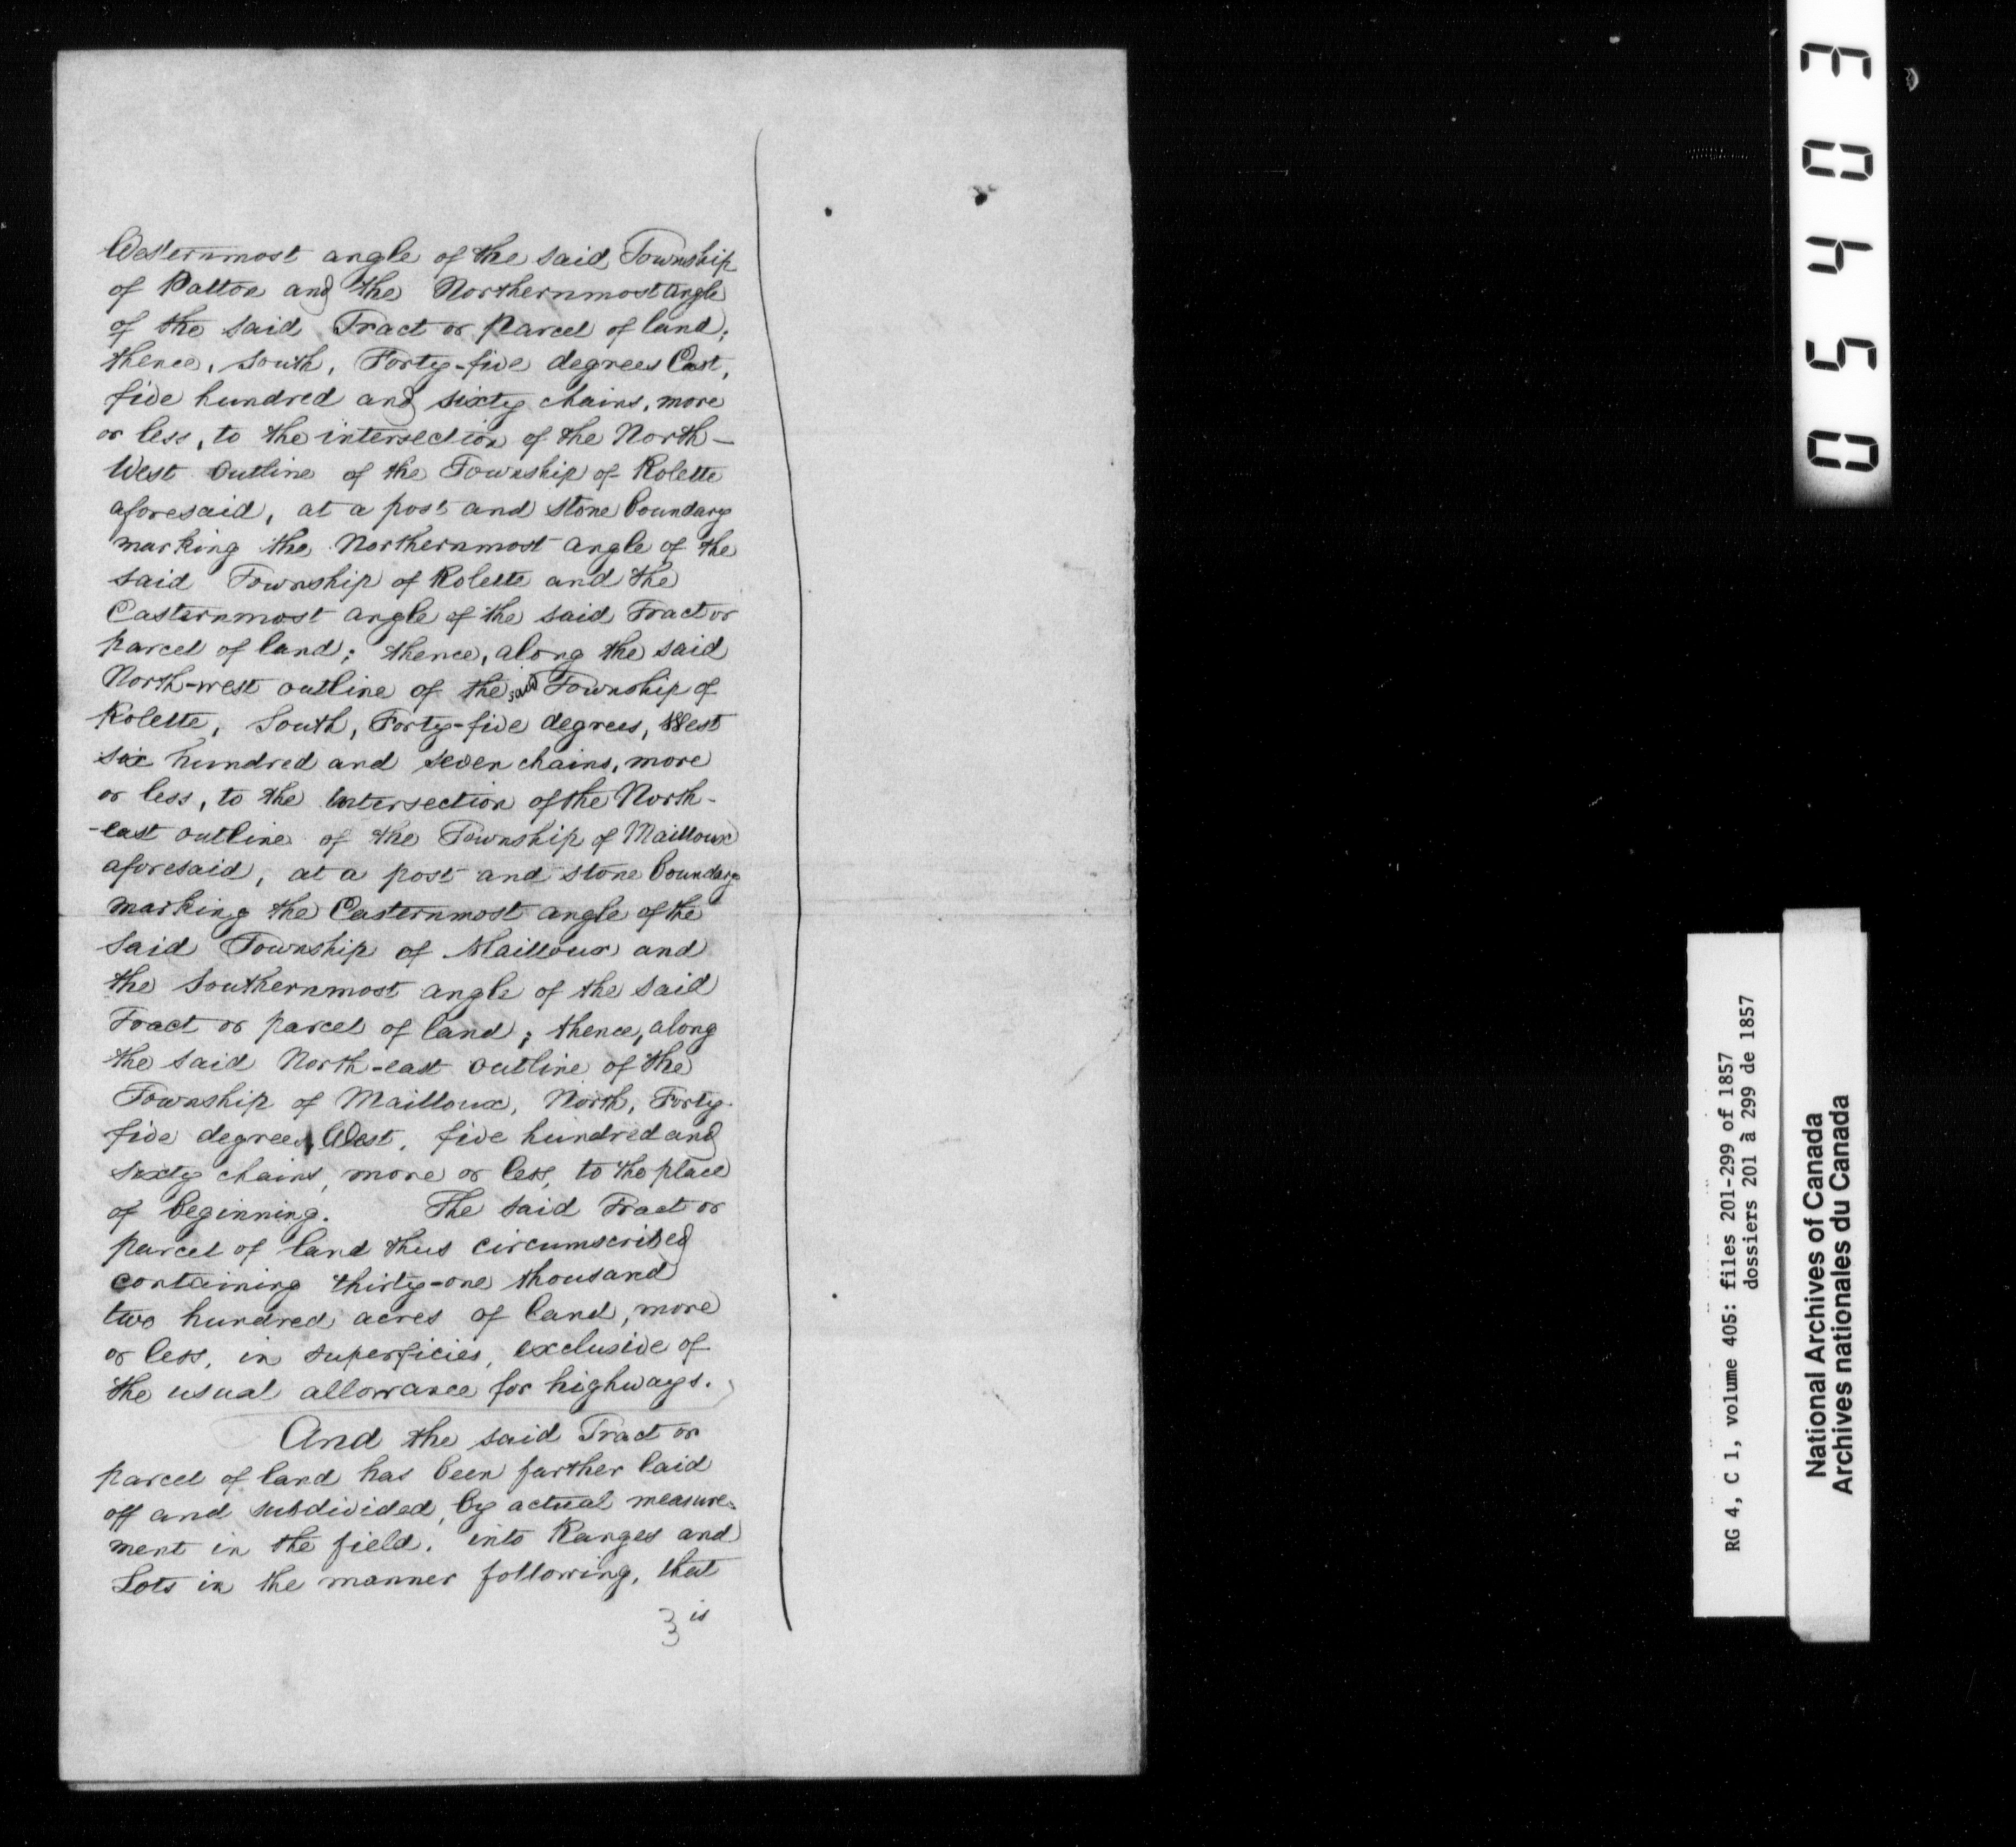 Westernmost angle of the said Township
of Patton and the Northernmost angle
of the said Tract or parcel of land;
thence, south, Forty-five degrees East,
five hundred and sixty chains, more
or less, to the intersection of the North-
West outline of the Township of Rolette
aforesaid, at a post and stone boundary
marking the Northernmost angle of the
said Township of Rolette and the
Easternmost angle of the said Tract or
parcel of land; thence, along the said
North-west outline of the said Township of
Rolette, South, Forty-five degrees, West
six hundred and seven chains, more
or less, to the intersection of the North-
-east outline of the Township of Mailloux
aforesaid, at a post and stone boundary
marking the Easternmost angle of the
said Township of Mailloux and
the Southernmost angle of the said
Tract or parcel of land; thence, along
the said North-east outline of the
Township of Mailloux, North, Forty-
five degrees, West, five hundred and
sixty chains, more or less, to the place
of beginning. The said Tract or
parcel of land thus circumscribed
containing thirty-one thousand
two hundred acres of land, more
or less, in superficies, exclusive of
the usual allowance for highways.
And the said Tract or
parcel of land has been further laid
off and subdivided, by actual measure-
ment in the field, into Ranges and
Lots in the manner following, that
3 is
05403
RG 4, C 1, volume 405: files 201-299 of 1857
dossiers 201 à 299 de 1857
National Archives of Canada
Archives nationales du Canada